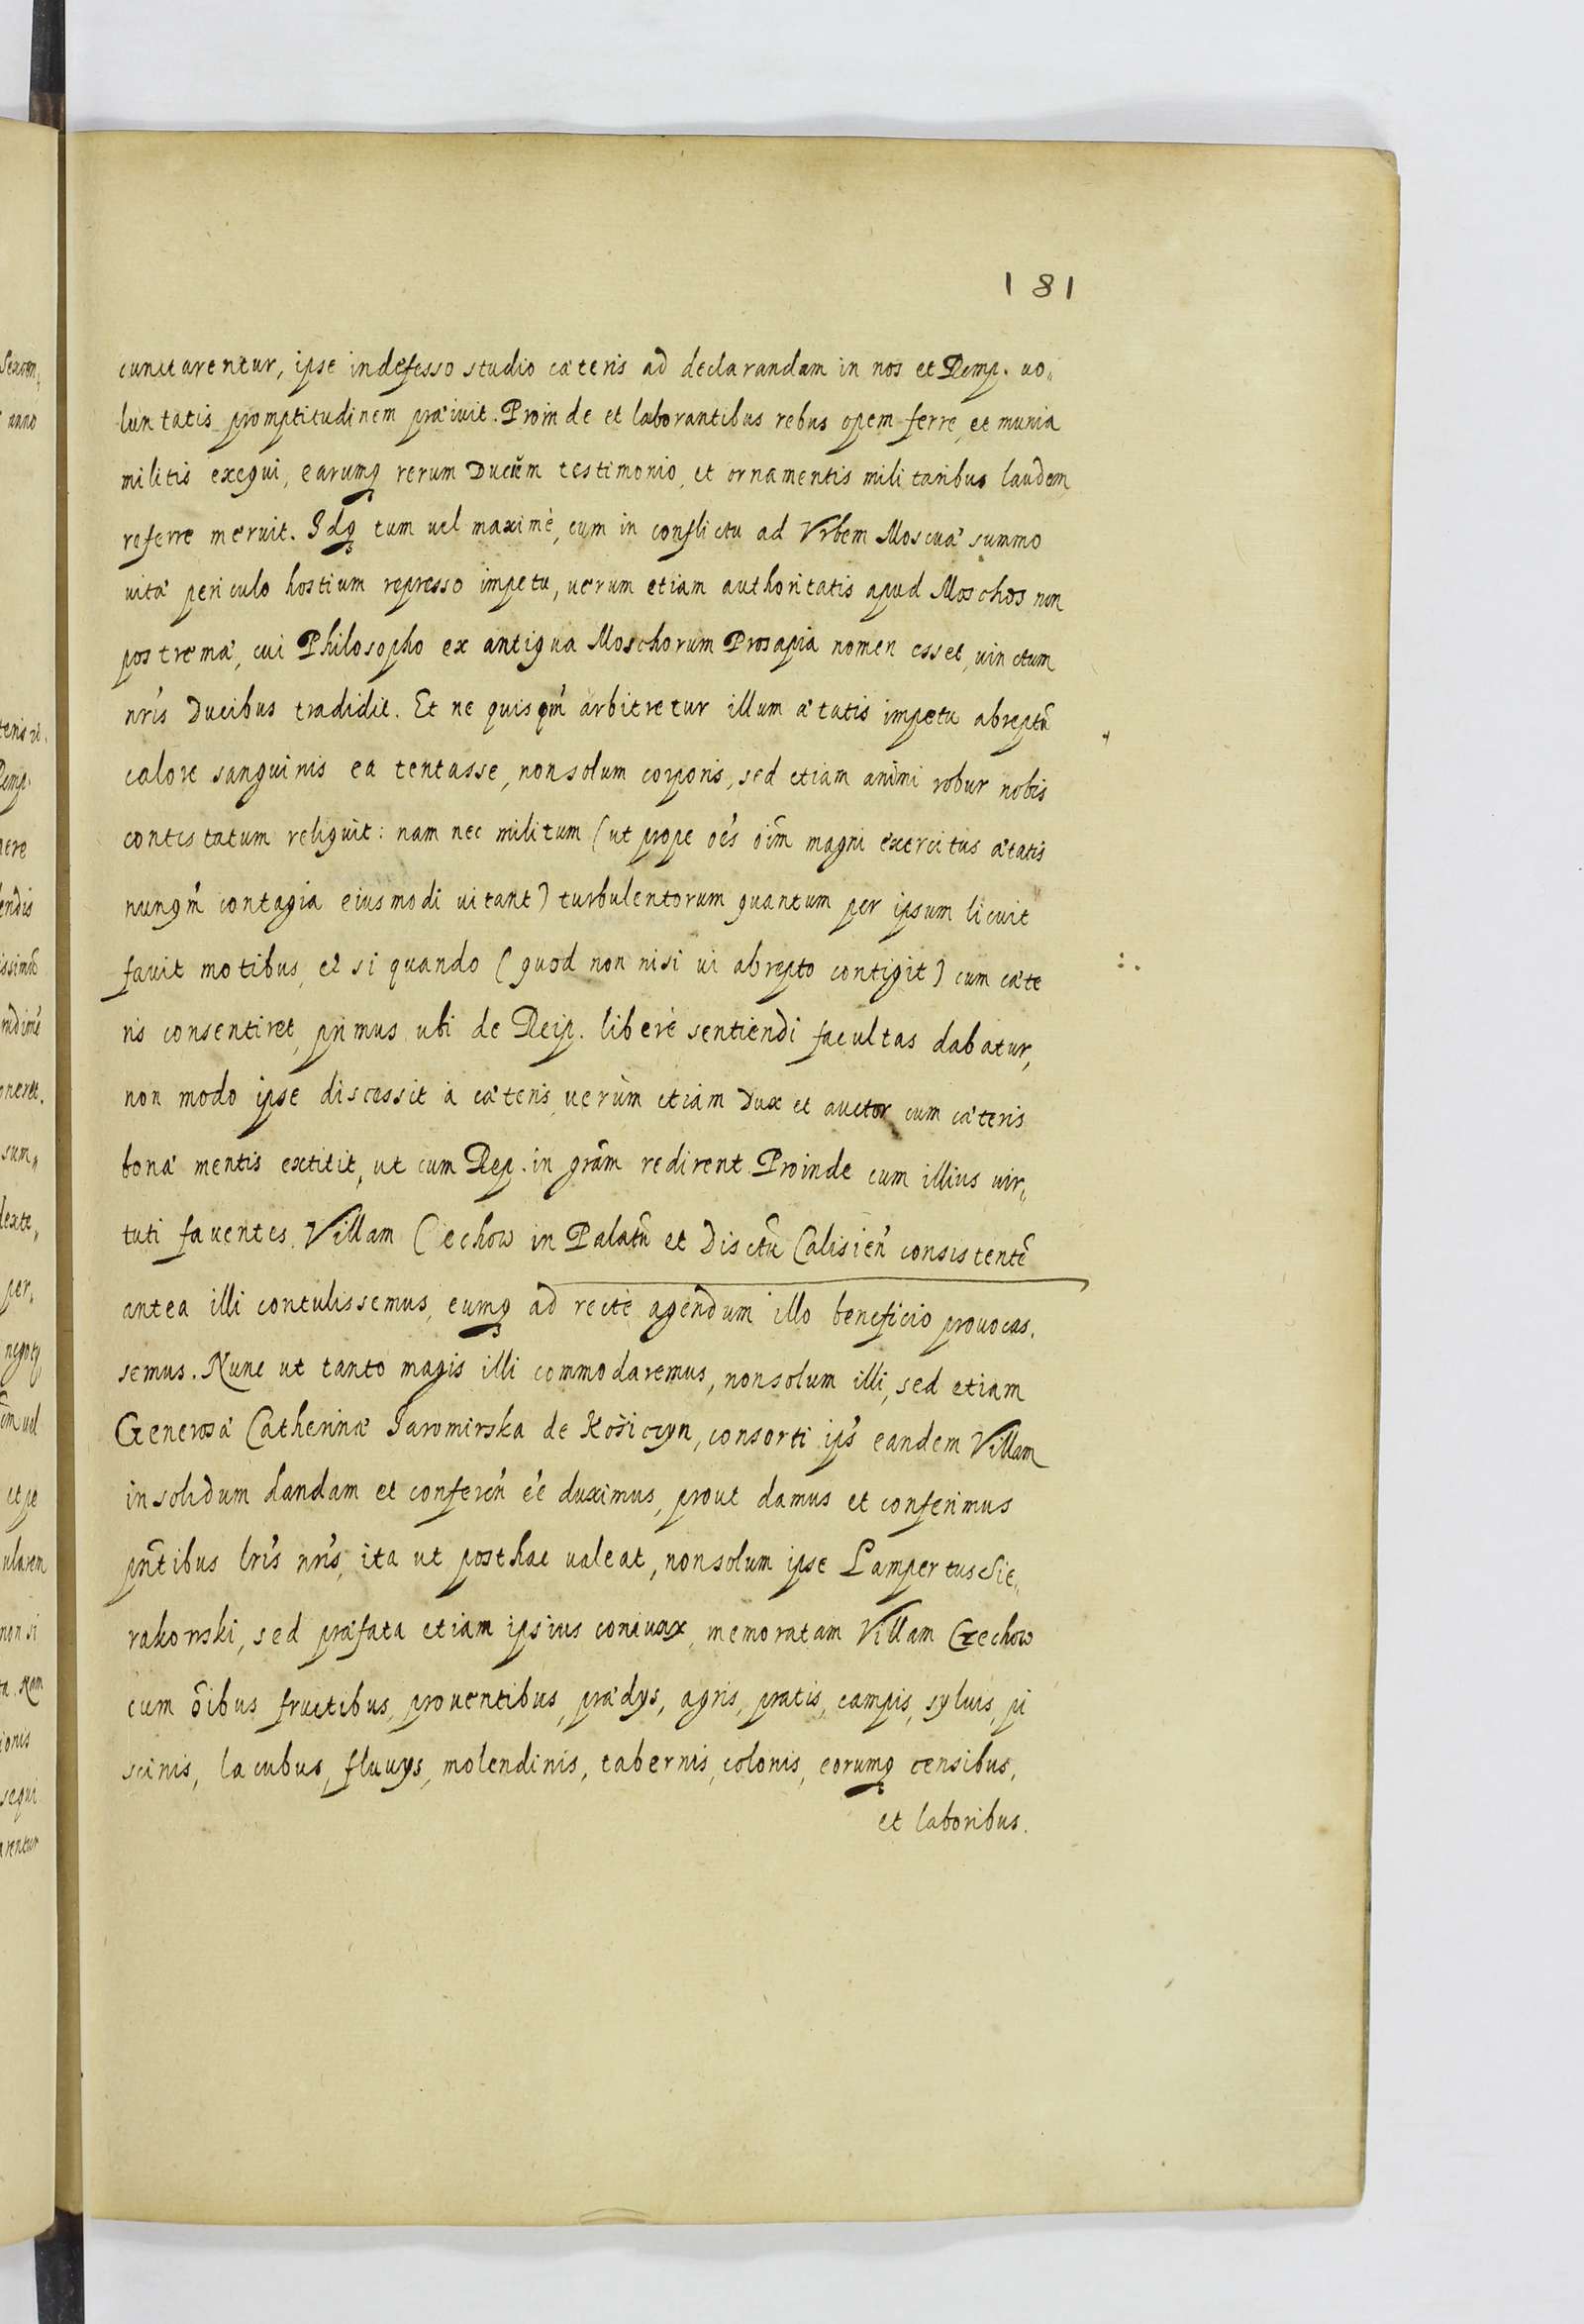 181
cunctarentur, ipse indefesso studio cæteris ad declarandam in nos et Remp. uo„
luntatis promptitudinem præiuit. Proinde et laborantibus rebus opem ferre, et munia
militis exequi, earumq rerum Ducũm testimonio, et ornamentis militaribus laudem
referre meruit. Idq tum uel maximè, cum in conflictu ad Vrbem Moscuæ summo
uitæ periculo hostium represso impetu, uerum etiam authoritatis apud Moschos non
postremæ, cui Philosopho ex antiqua Moschorum Prosapia nomen esset, uinctum
nr̃is Ducibus tradidit. Et ne quisqm̃ arbitretur illum ætatis impetu abreptũ
calore sanguinis ea tentasse, non solum corporis, sed etiam animi robur nobis
contestatum reliquit: nam nec militum (ut prope oẽs oĩm magni exercitus ætatis
nunqm̃ contagia eiusmodi uitant) turbulentorum quantum per ipsum licuit
fauit motibus, et si quando (quod non nisi ui abrepto contigit) cum cæte
ris consentiret, primus ubi de Reip. liberè sentiendi facultas dabatur,
non modo ipse discessit à cæteris, uerùm etiam Dux et auctor cum cæteris
bonæ mentis extitit, ut cum Rep. in grãm redirent. Proinde cum illius uir„
tuti fauentes. Villam Czechow in Palatũ et Disctũ Calisieñ consistentẽ
antea illi contulissemus, eumq ad rectè agendum illo beneficio prouocas.
semus. Nunc ut tanto magis illi commodaremus, non solum illi, sed etiam
Generosæ Catherinæ Jaromirska de Kosiczyn, consorti ips̃ eandem Villam
in solidum dandam et confereñ eẽ duximus, prout damus et conferimus
pñtibus lr̃is nr̃is, ita ut posthac ualeat, non solum ipse Lampertus Sie„
rakowski, sed præfata etiam ipsius coniunx, memoratam Villam Czechow
cum oĩbus fructibus, prouentibus, prædys, agris, pratis, campis, syluis, pi
scinis, lacubus, fluuys, molendinis, tabernis, colonis, eorumq censibus,
et laboribus.